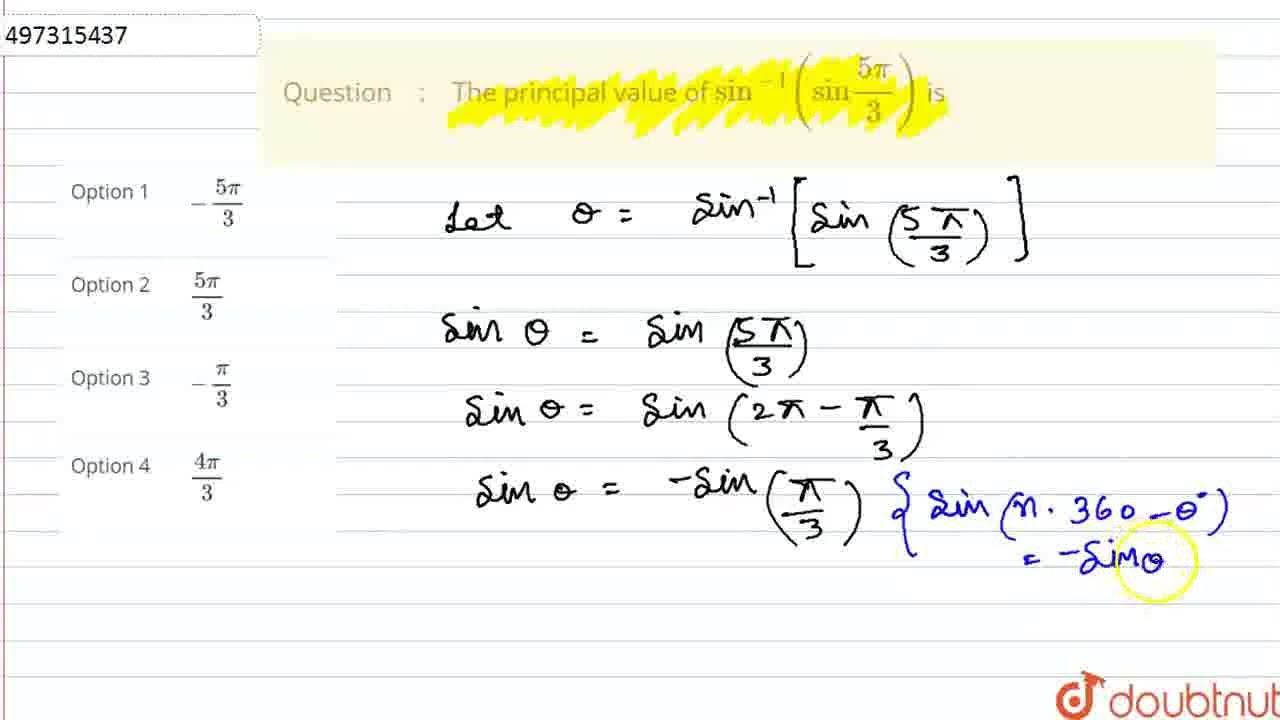 497315437
Question : The principal value of sin⁻¹(sin 5π/3) is
Option 1 -5π/3
Option 2 5π/3
Option 3 -π/3
Option 4 4π/3
Let θ = sin⁻¹[sin(5π/3)]
sin θ = sin(5π/3)
sin θ = sin(2π - π/3)
sin θ = -sin(π/3) { sin(n. 360 - θ°)
= -sinθ
doubtnut